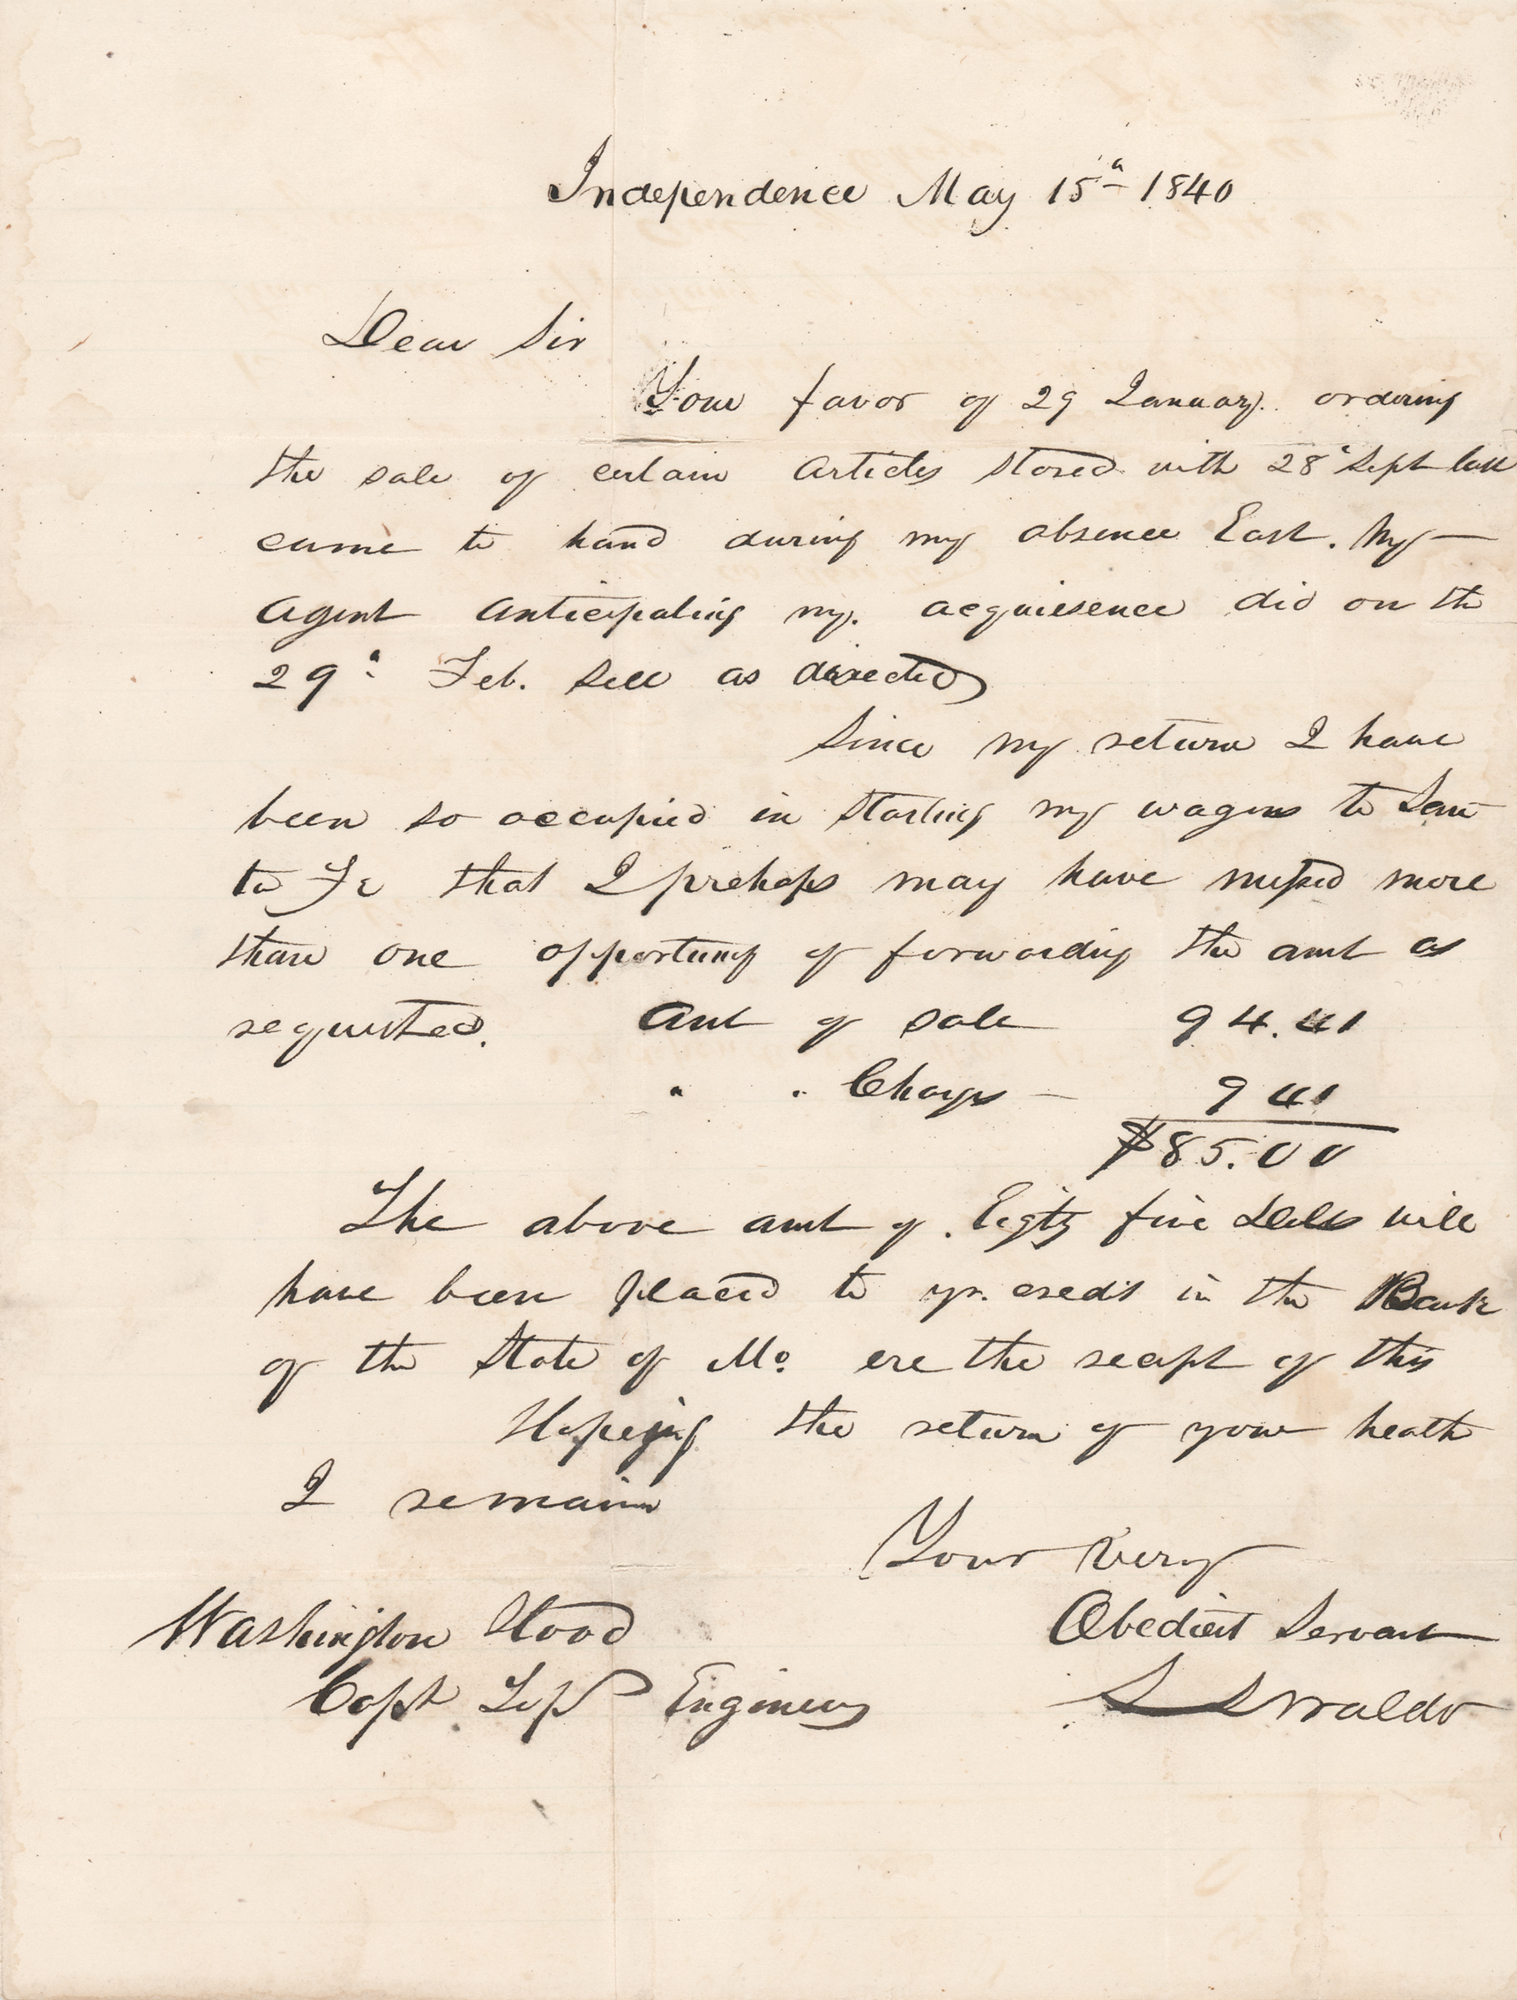 Independence May 15th 1840
Dear Sir
Your favor of 29 January. ordering
the sale of certain articles stored with 28 Sept last
came to hand during my absence East. My
agent anticipating my. acquiesence did on the
29th Feb. sell as directed
Since my return I have
been so occupied in starting my wagons to San
ta Fe that I prehaps may have missed more
than one opportuny of forwarding the amt as
requested. Amt of sale 94.41
" " Charges 9 41
$85.00
The above amt of Eigty five Dolls will
have been placed to yr. credit in the Bank
of the State of Mo. ere the recept of this
Hopeing the return of your heath
I remain
Your Very
Obedient Servant
Washington Hood
Capt Top Engineers
Waldo